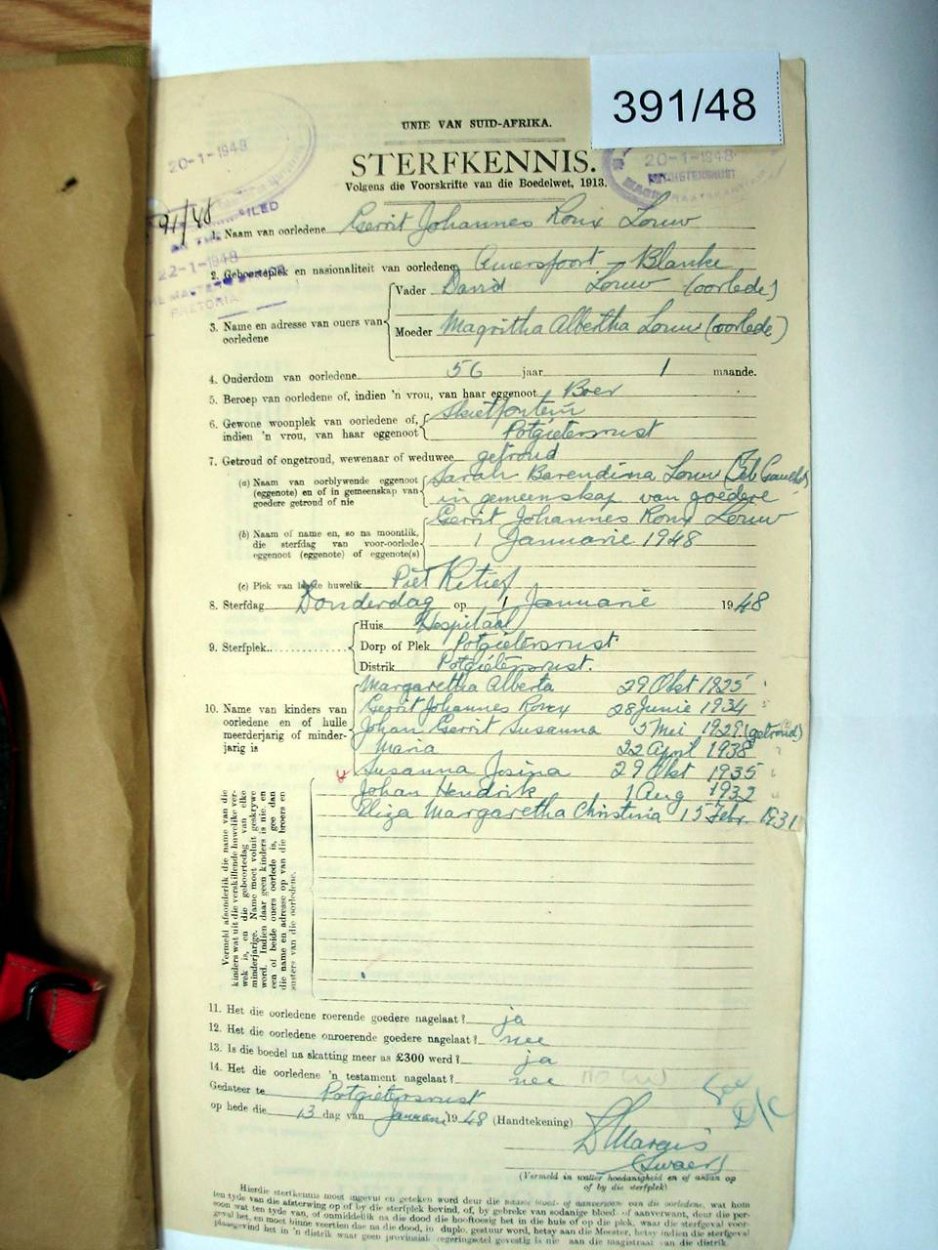 391/48
UNIE VAN SUID-AFRIKA.
20-1-1948
20-1-1948
STERFKENNIS.
Volgens die Voorskrifte van die Boedelwet, 1913.
391/48
22-1-1948
PRETORIA
1. Naam van oorledene Gerrit Johannes Roux Louw
2. Geboorteplek en nasionaliteit van oorledene Amersfoort - Blanke
3. Name en adresse van ouers van oorledene
Vader David Louw (oorlede)
Moeder Magritha Albertha Louw (oorlede)
4. Ouderdom van oorledene 56 jaar 1 maande.
5. Beroep van oorledene of, indien 'n vrou, van haar eggenoot Boer
6. Gewone woonplek van oorledene of, indien 'n vrou, van haar eggenoot Skietfontein
Potgietersrust
7. Getroud of ongetroud, wewenaar of weduwee getroud
(a) Naam van oorblywende eggenoot (eggenote) en of in gemeenskap van goedere getroud of nie
Sarah Barendina Louw (Geb
in gemeenskap van goedere
(b) Naam of name en, so na moontlik, die sterfdag van voor-oorlede eggenoot (eggenote) of eggenote(s)
Gerrit Johannes Roux Louw
1 Januarie 1948
(c) Plek van laaste huwelik Piet Retief
8. Sterfdag Donderdag op 1 Januarie 1948
9. Sterfplek
Huis Hospitaal
Dorp of Plek Potgietersrust
Distrik Potgietersrust.
10. Name van kinders van oorledene en of hulle meerderjarig of minderjarig is
Margaretha Alberta 29 Okt 1925
Gerrit Johannes Roux 28 Junie 1934
Johan Gerrit Susanna 5 Mei 1929 (getroud)
Maria 22 April 1938
Susanna Josina 29 Okt 1935
Johan Hendrik 1 Aug 1932
Eliza Margaretha Christina 15 Febr. 1931
Vermeld afsonderlik die name van die
kinders wat uit die verskillende huwelike ver-
wek is, en die geboortedag van elke
minderjarige. Name moet voluit geskrywe
word. Indien daar geen kinders is nie, en
een of beide ouers oorlede is, gee dan
die name en adresse op van die broers en
susters van die oorledene.
11. Het die oorledene roerende goedere nagelaat? ja
12. Het die oorledene onroerende goedere nagelaat? nee
13. Is die boedel na skatting meer as £300 werd? ja
14. Het die oorledene 'n testament nagelaat? nee
Gedateer te Potgietersrust
op hede die 13 dag van Januarie 1948 (Handtekening)
(Swaer)
(Vermeld in watter hoedanigheid en of antwoord op of by die sterfplek)
Hierdie sterfkennis moet ingevul en geteken word deur die naaste bloed- of aanverwant van die oorledene, wat hom
ten tyde van die afsterwing op of by die sterfplek bevind, of, by gebreke van sodanige bloed- of aanverwant, deur die per-
soon wat ten tyde van, of onmiddellik na die dood die hooftoesig het in die huis of op die plek, waar die sterfgeval voor-
geval het, en moet binne veertien dae na die dood, in duplo, gestuur word, hetsy aan die Meester, hetsy indien die sterfgeval
plaasgevind het in 'n distrik waar geen provinsiale regeringsetel gevestig is nie aan die magistraat van die distrik.